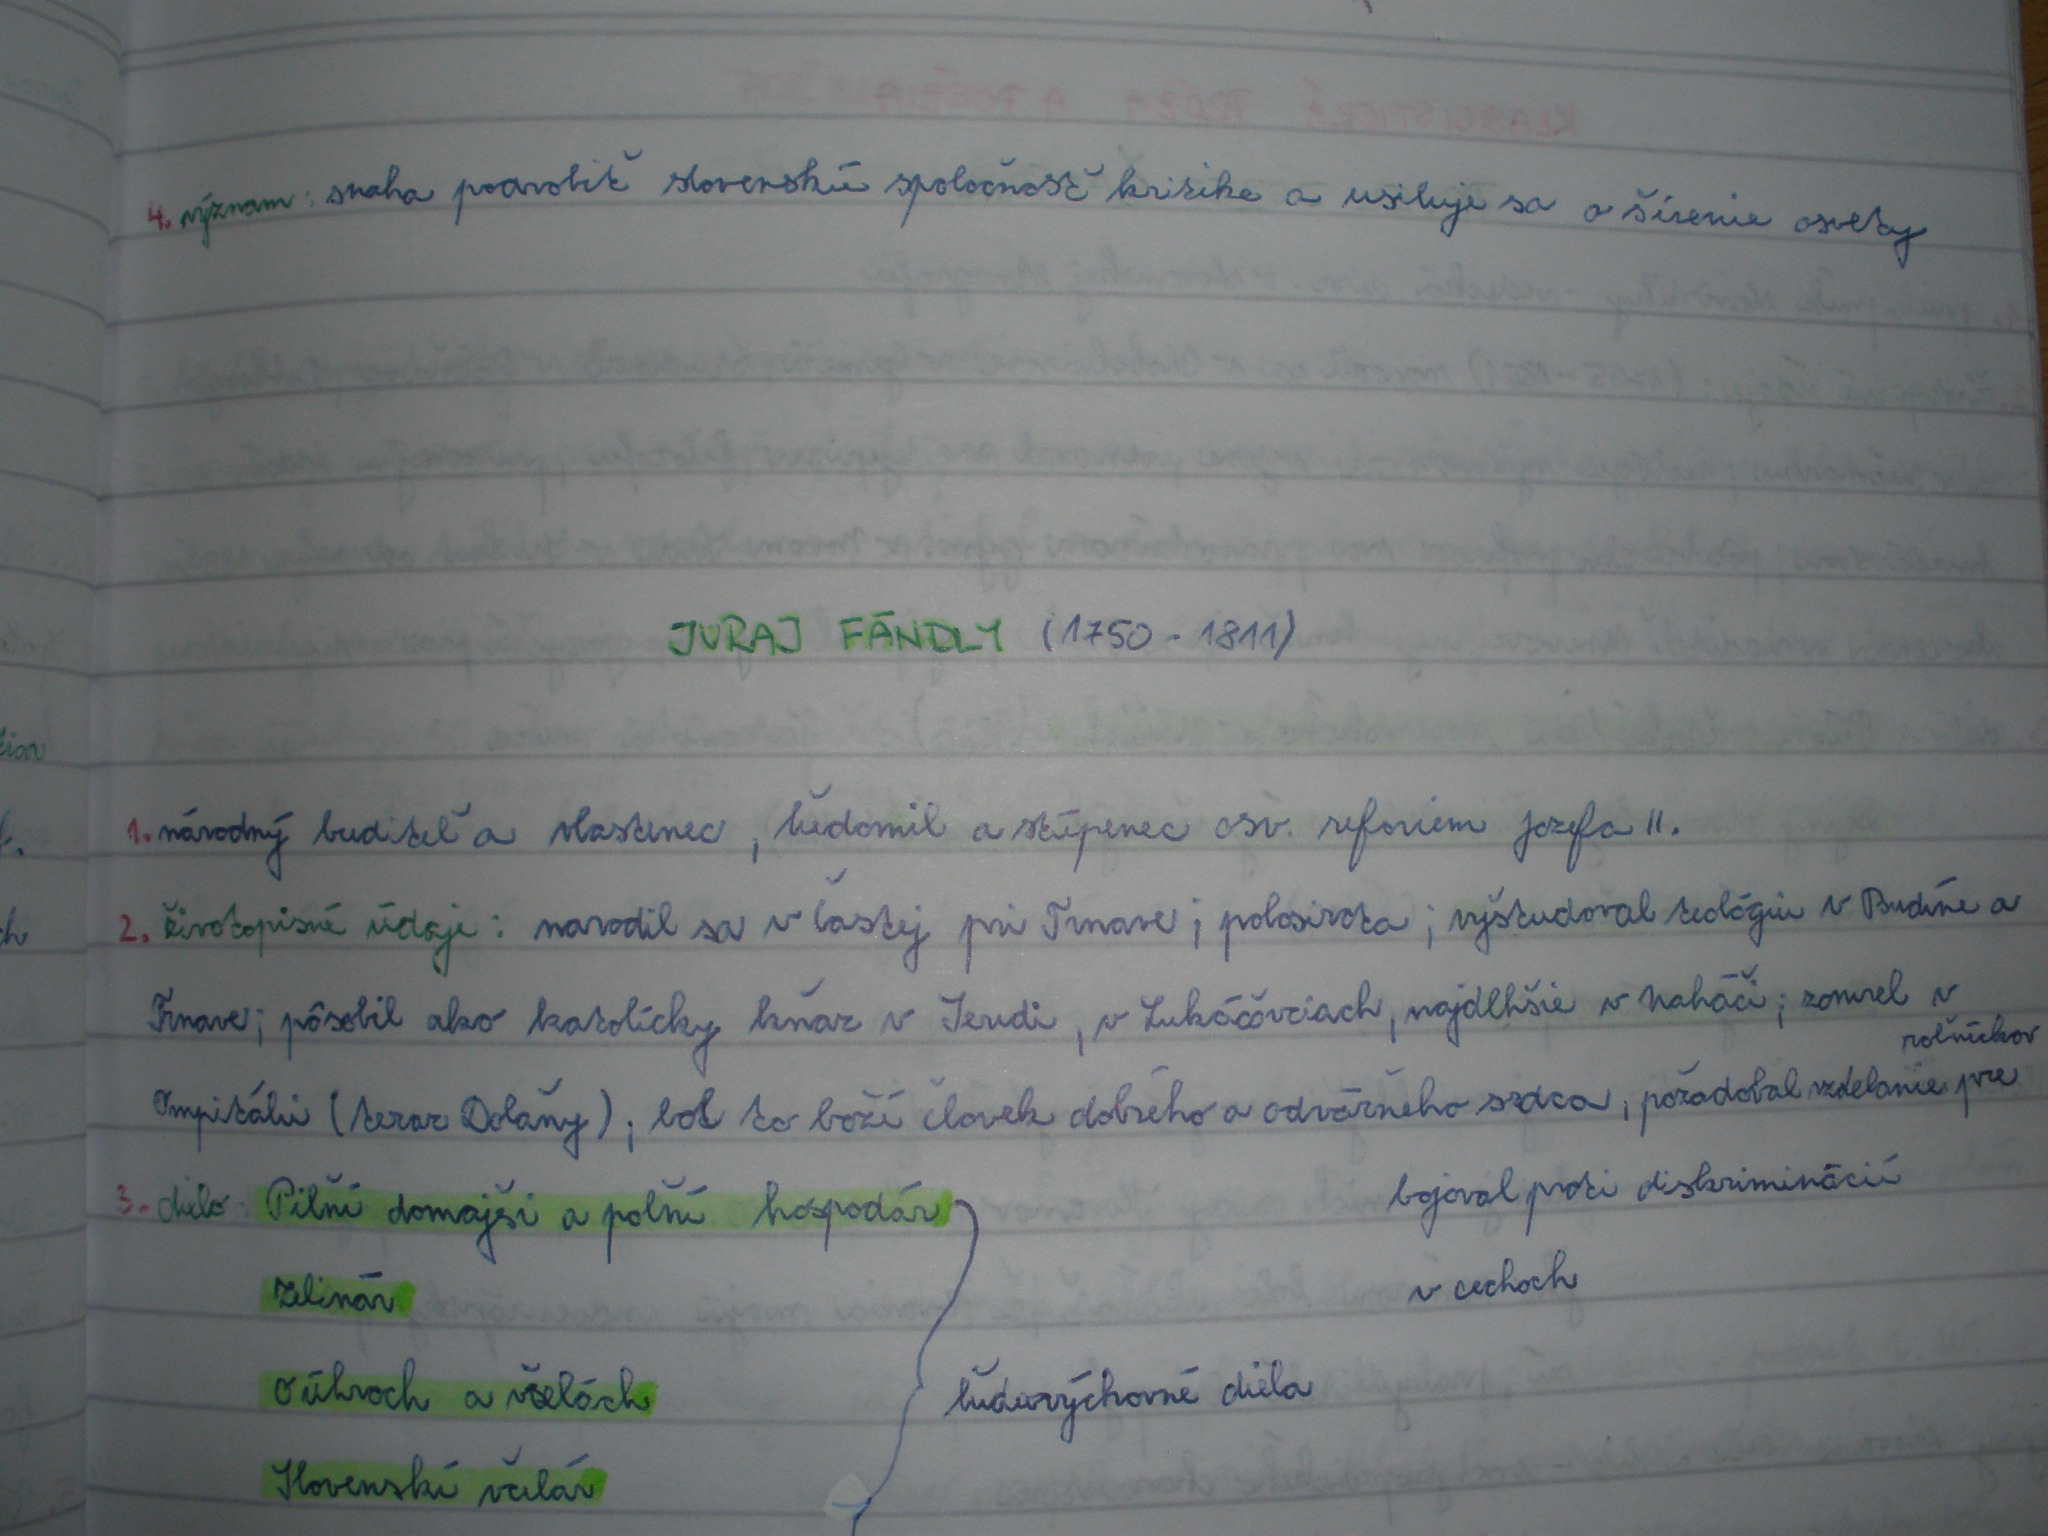 4. význam: snaha podrobiť slovenskú spoločnosť kritike a usiluje sa o šírenie osvety
JURAJ FÁNDLY (1750 - 1811)
1. národný buditeľ a vlastenec, ľudomil a stúpenec osv. reforiem Jozefa II.
2. životopisné údaje: narodil sa v Častej pri Trnave; polosirota; vyštudoval teológiu v Budíne a
Trnave; pôsobil ako katolícky kňaz v Seredi, v Lukáčovciach, najdlhšie v Naháči; zomrel v
roľníkov
Ompitáli (teraz Doľany); bol to boží človek dobrého a odvážneho srdca, požadoval vzdelanie pre
3. dielo: Pilní domajší a poľní hospodár
bojoval proti diskriminácii
Zelinár
v cechoch
O úhroch a včelách
ľudovýchovné diela
Slovenskí včelár